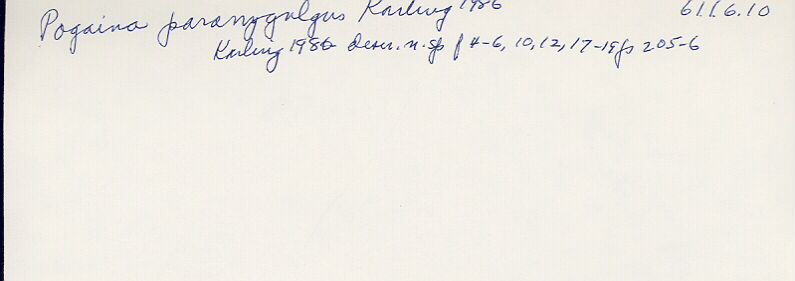 Pogaina paranygulgus Karling 1986 61.16.10
Karling 1986 descr. n. sp f 4-6, 10, 12, 17-19 p 205-6